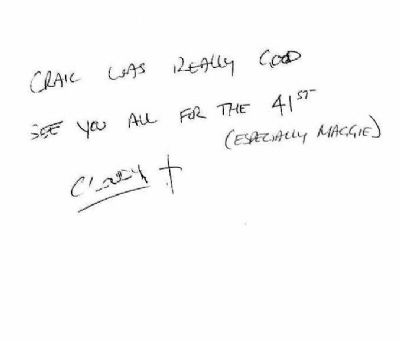 CRAIC WAS REALLY GOOD
SEE YOU ALL FOR THE 41ST
(ESPECIALLY MAGGIE)